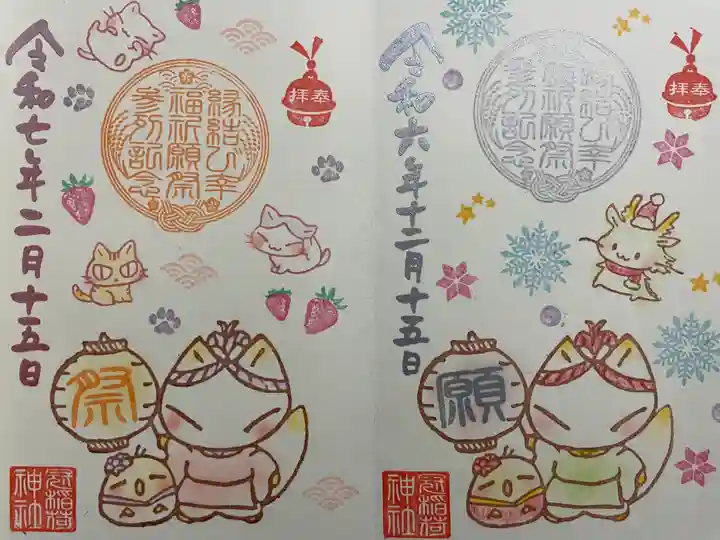 奉拝
縁結び幸
福祈願祭
参列記念
令和七年二月十五日
祭
冠稲荷
神社
奉拝
縁結び幸
福祈願祭
参列記念
令和六年十二月十五日
願
冠稲荷
神社